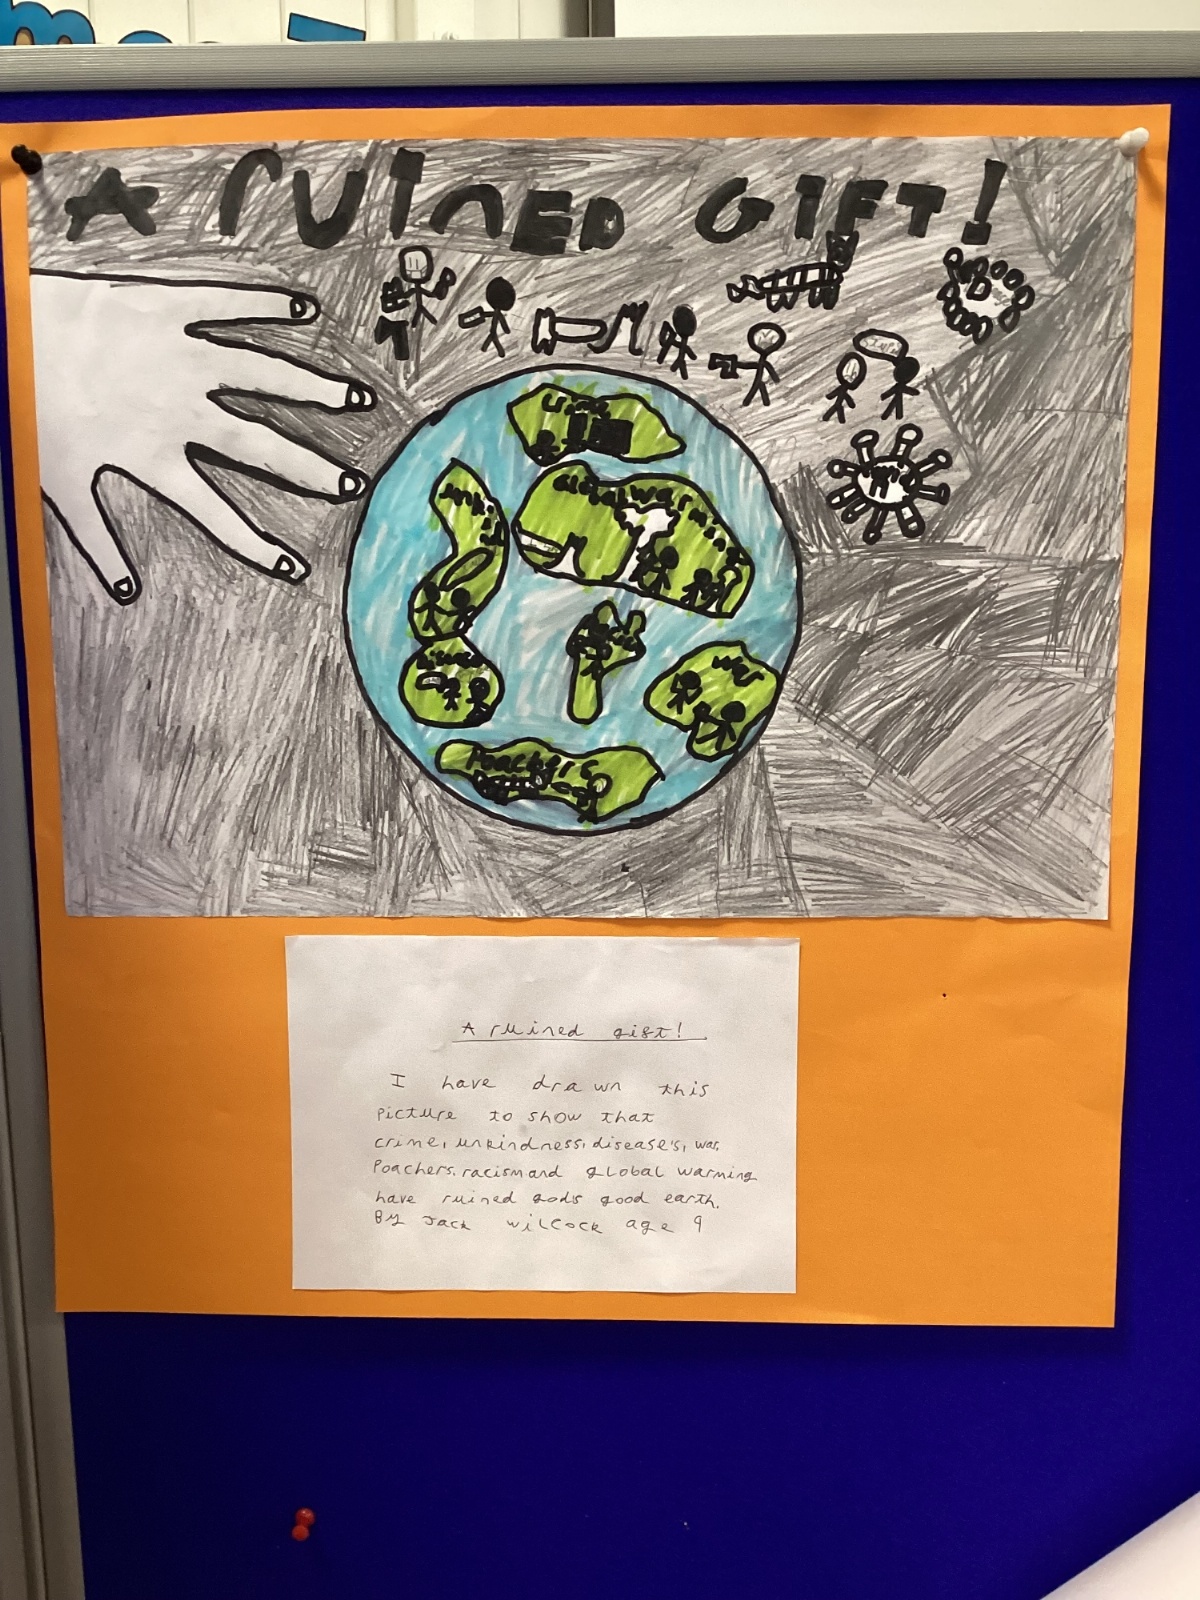 A ruinED GIFT!
crime
Global warming
war
Poachers
A ruined gift!
I have drawn this
picture to show that
crime, unkindness, disease's, war,
Poachers, racism and global warming
have ruined gods good earth.
By Jack Wilcock age 9